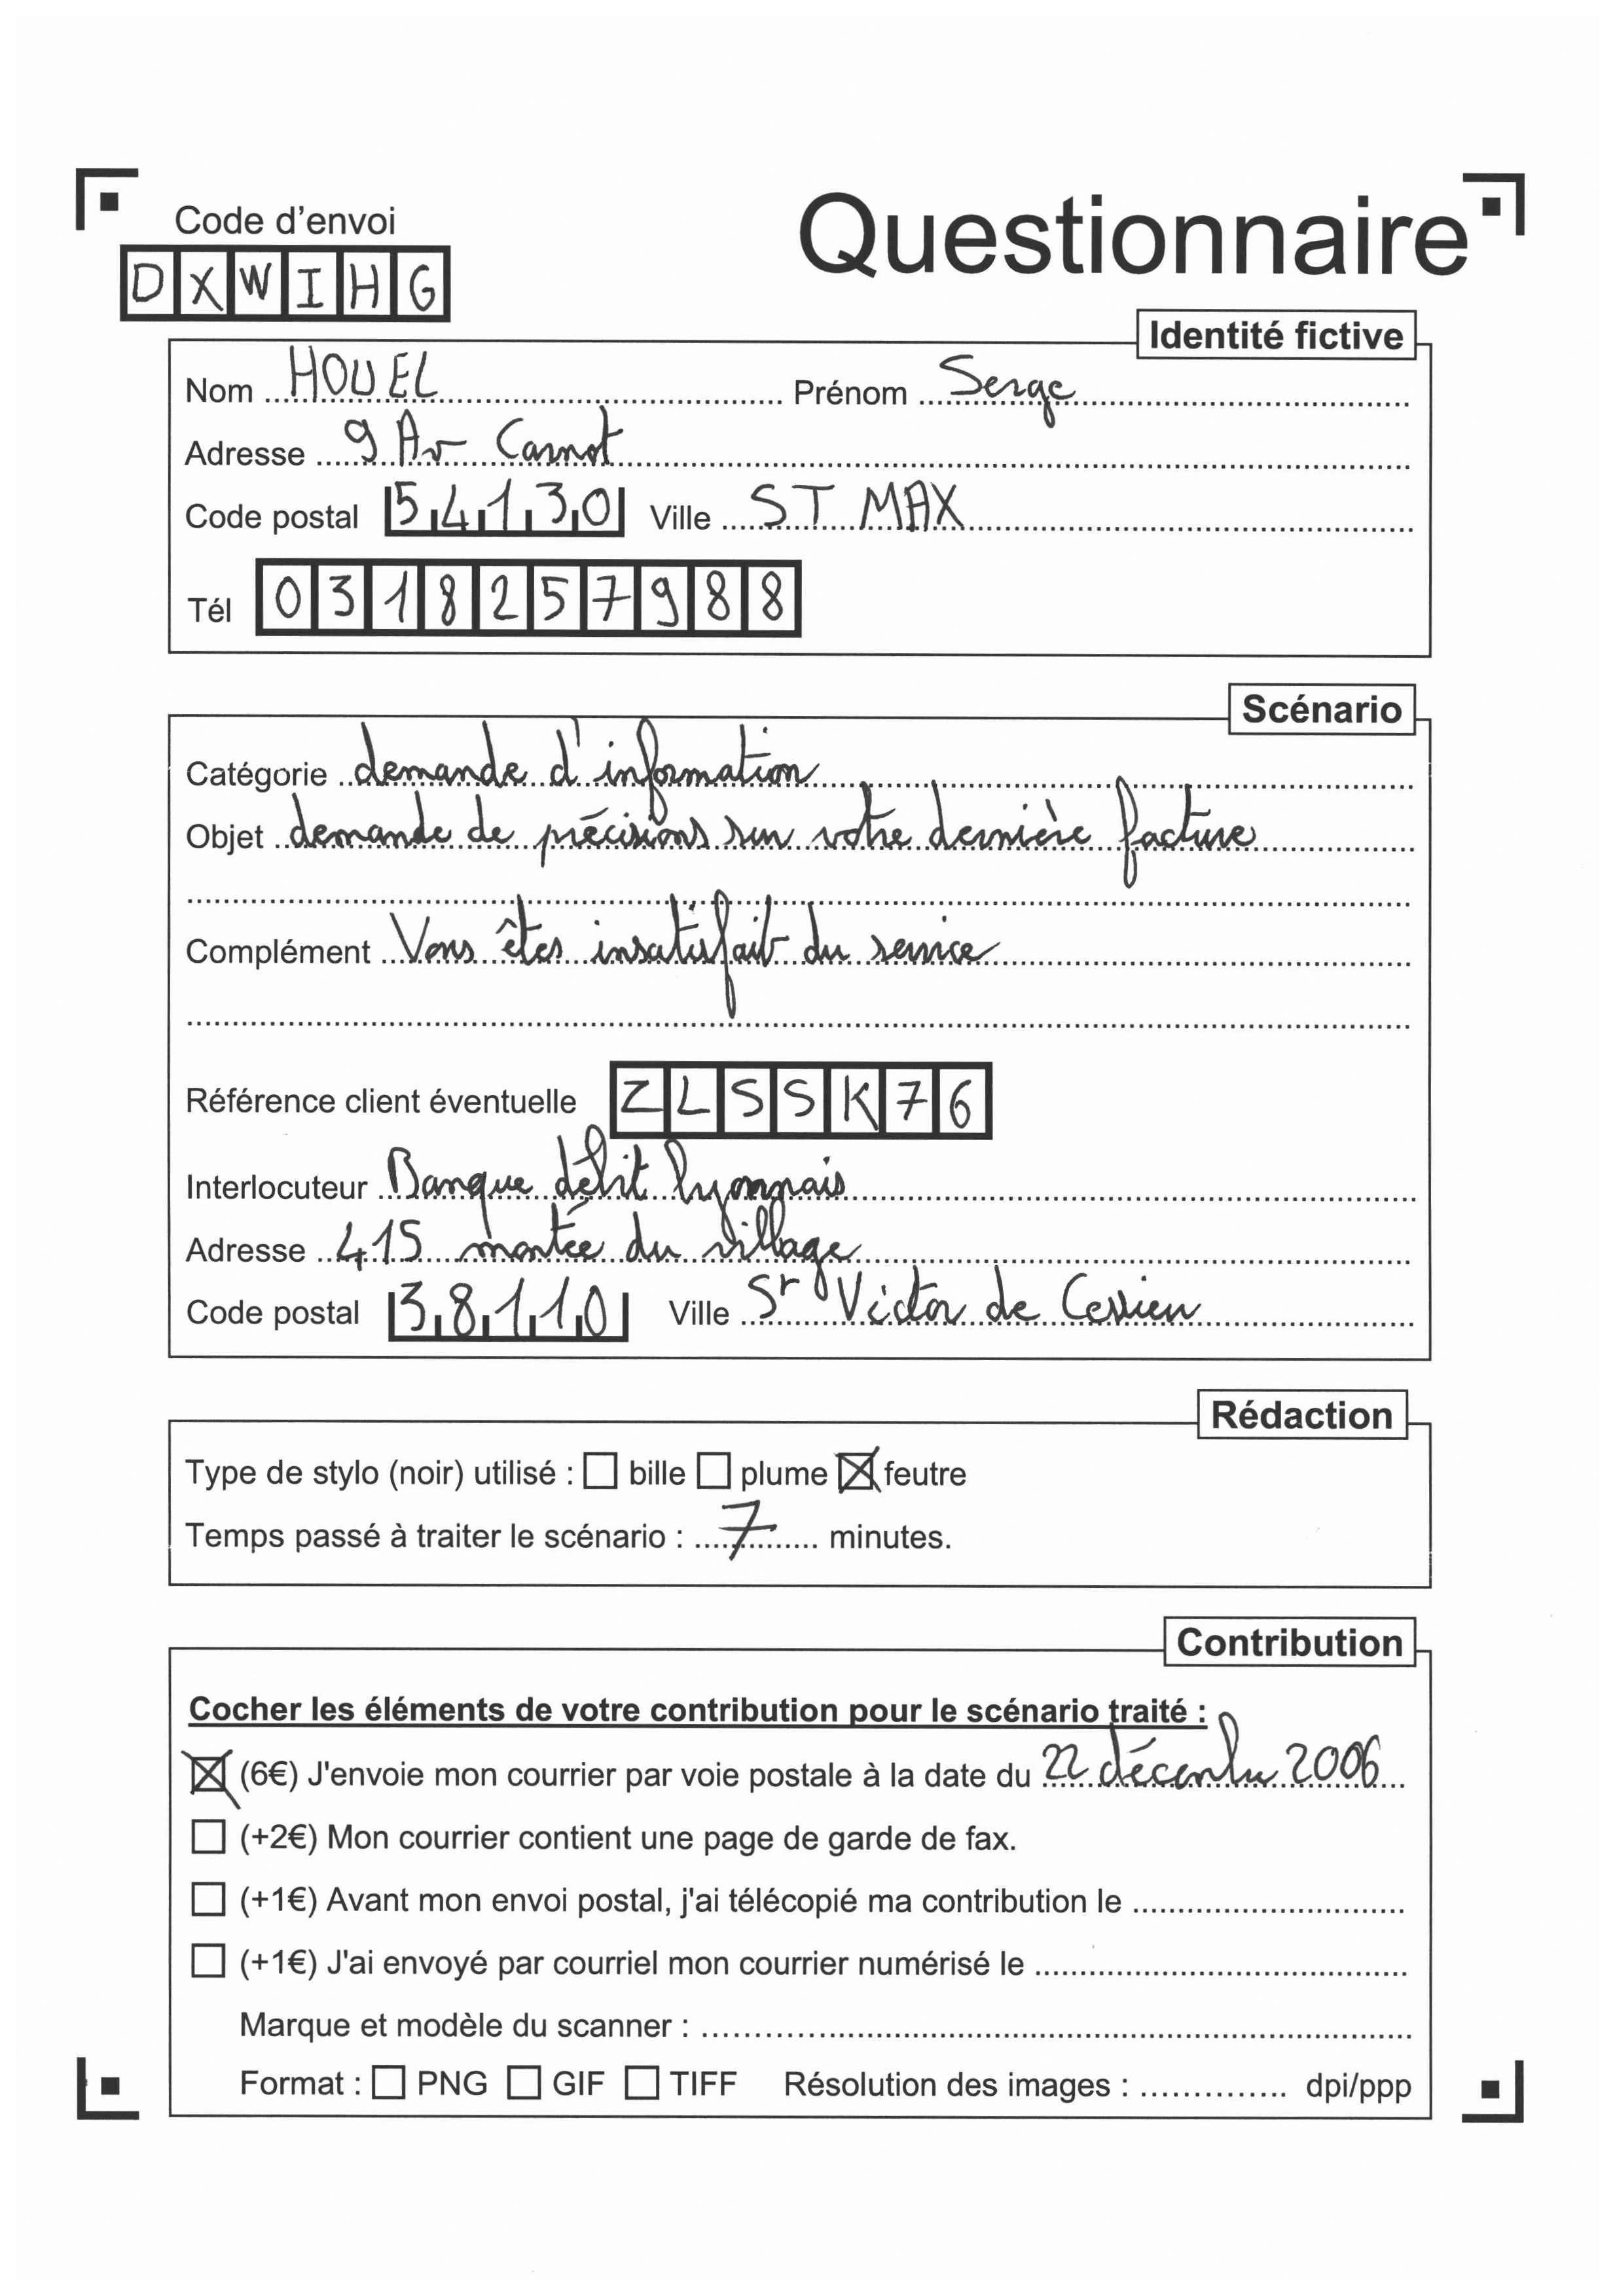 Code d'envoi
Questionnaire
DXWIHG
Identité fictive
Nom HOUEL Prénom Serge
Adresse 9 Av Carnot
Code postal 54130 Ville ST MAX
Tél 0318257988
Scénario
Catégorie demande d'information
Objet demande de précisions sur votre dernière facture
Complément Vous êtes insatisfait du service
Référence client éventuelle ZLSSK76
Interlocuteur Banque débit lyonnais
Adresse 415 montée du village
Code postal 38110 Ville St Victor de Cessieu
Rédaction
Type de stylo (noir) utilisé : bille plume feutre
Temps passé à traiter le scénario : 7 minutes.
Contribution
Cocher les éléments de votre contribution pour le scénario traité :
(6€) J'envoie mon courrier par voie postale à la date du 22 décembre 2006
(+2€) Mon courrier contient une page de garde de fax.
(+1€) Avant mon envoi postal, j'ai télécopié ma contribution le
(+1€) J'ai envoyé par courriel mon courrier numérisé le
Marque et modèle du scanner :
Format : PNG GIF TIFF Résolution des images : dpi/ppp